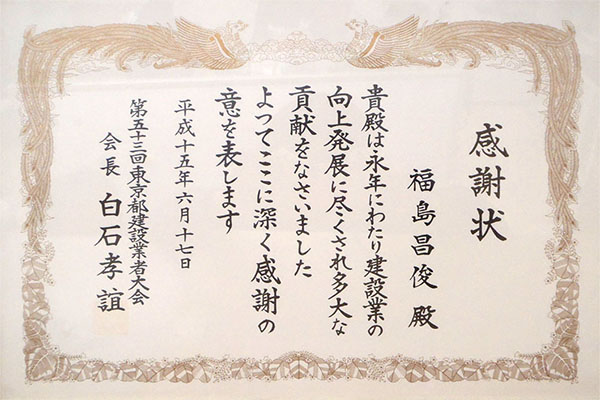 感謝状
福島昌俊 殿
貴殿は永年にわたり建設業の
向上発展に尽くされ多大な
貢献をなさいました
よってここに深く感謝の
意を表します
平成十五年六月十七日
第五十三回東京都建設業者大会
会長 白石孝誼